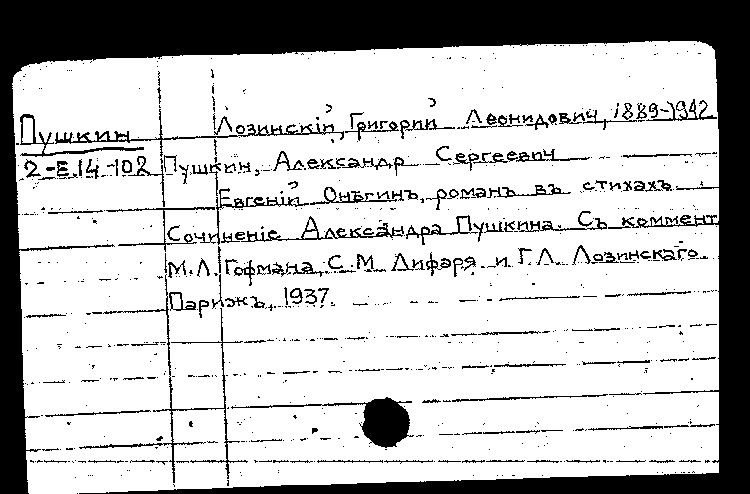 Лозинскій, Григорий Леонидович, 1889-1942
Пушкин
2-Е.14-102 Пушкин, Александр Сергеевич
Евгеній Онѣгинъ, романъ въ стихахъ.
Сочиненіе Александра Пушкина. Съ коммент.
М.Л. Гофмана, С.М. Лифаря и Г.Л. Лозинскаго.
Парижъ, 1937.